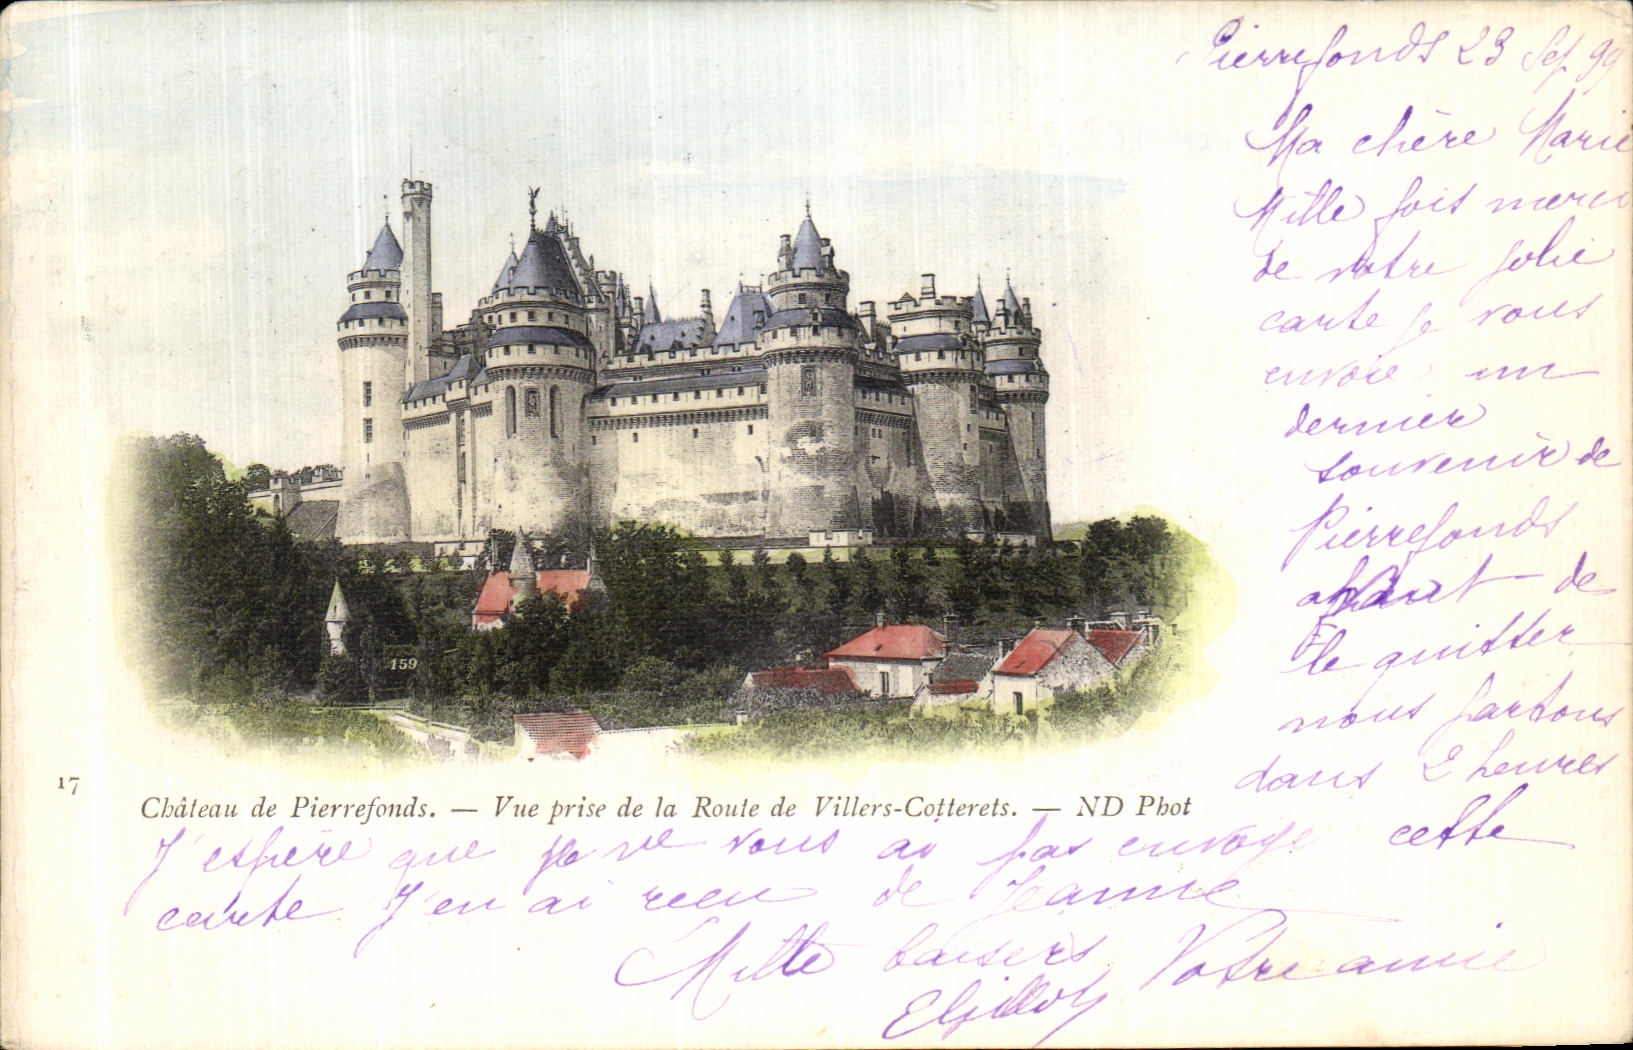 Pierrefonds 23 Sep 99
Ma chère Marie
Mille fois merci
de votre jolie
carte je vous
envoie un
dernier
souvenir de
Pierrefonds
avant de
le quitter
nous partons
dans 2 heures
159
17
Château de Pierrefonds. — Vue prise de la Route de Villers-Cotterets. — ND Phot
J'espère que je ne vous ai pas envoyé cette
carte J'en ai reçu de Jeanne
Mille baisers Votre amie